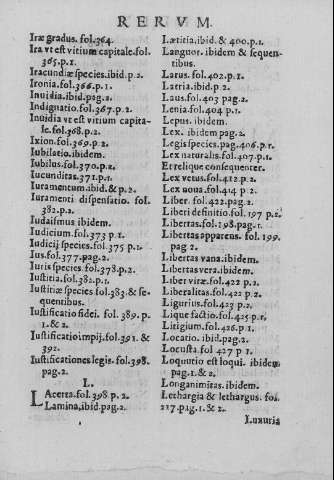 RERVM.
Iræ gradus. fol.364.
Ira vt est vitium capitale. fol.
365.p.1.
Iracundiæ species. ibid p.2.
Ironia. fol.366.p.1.
Inuidia. ibid. pag.2.
Indignatio. fol.367.p.2.
Inuidia vt est vitium capita-
le. fol.368.p.2.
Ixion. fol.369.p.2.
Iubilatio. ibidem.
Iubilus. fol.370.p.2.
Iucunditas.371.p.1.
Iuramentum. ibid. & p.2.
Iuramenti dispensatio. fol.
382.p.2.
Iudaismus ibidem.
Iudicium. fol.373 p 1.
Iudicij species. fol.375 p.1.
Ius. fol.377.pag.2.
Iuris species. fol.378.p.2.
Iustitia. fol.382.p.1.
Iustitiæ species. fol.383. & se-
quentibus.
Iustificatio fidei. fol. 389. p.
1.& 2.
Iustificatio impij. fol.391. &
392.
Iustificationes legis. fol.398.
pag.2.
L.
LAcerta. fol.398 p.2.
Lamina, ibid pag.2.
Lætitia. ibid. & 400.p.1.
Languor. ibidem & sequen-
tibus.
Larus. fol.402.p.1.
Latria. ibid p.2.
Laus. fol.403 pag.2.
Lenia. fol.404 p.1.
Lepus. ibidem.
Lex. ibidem pag.2.
Legis species. pag.406.p.1.
Lex naturalis. fol.407.p.1.
Et relique consequenter.
Lex vetus. fol.412.p.2.
Lex noua. fol.414 p 2.
Liber. fol.422.pag.2.
Liberi definitio. fol.197 p.2.
Libertas. fol.198.pag.1.
Libertas apparens. fol. 199.
pag 2.
Libertas vana. ibidem.
Libertas vera. ibidem.
Liber vitæ. fol.422 p.2.
Liberalitas. fol.422 p.2.
Ligurius. fol.423 p.2.
Lique factio. fol.425.p.1.
Litigium. fol.426.p.1.
Locatio. ibid. pag.2.
Locusta fol 427 p 1.
Loquutio est loqui. ibidem
pag.1.& 2.
Longanimitas. ibidem.
Lethargia & lethargus. fol.
217.pag.1.& 2.
Luxuria